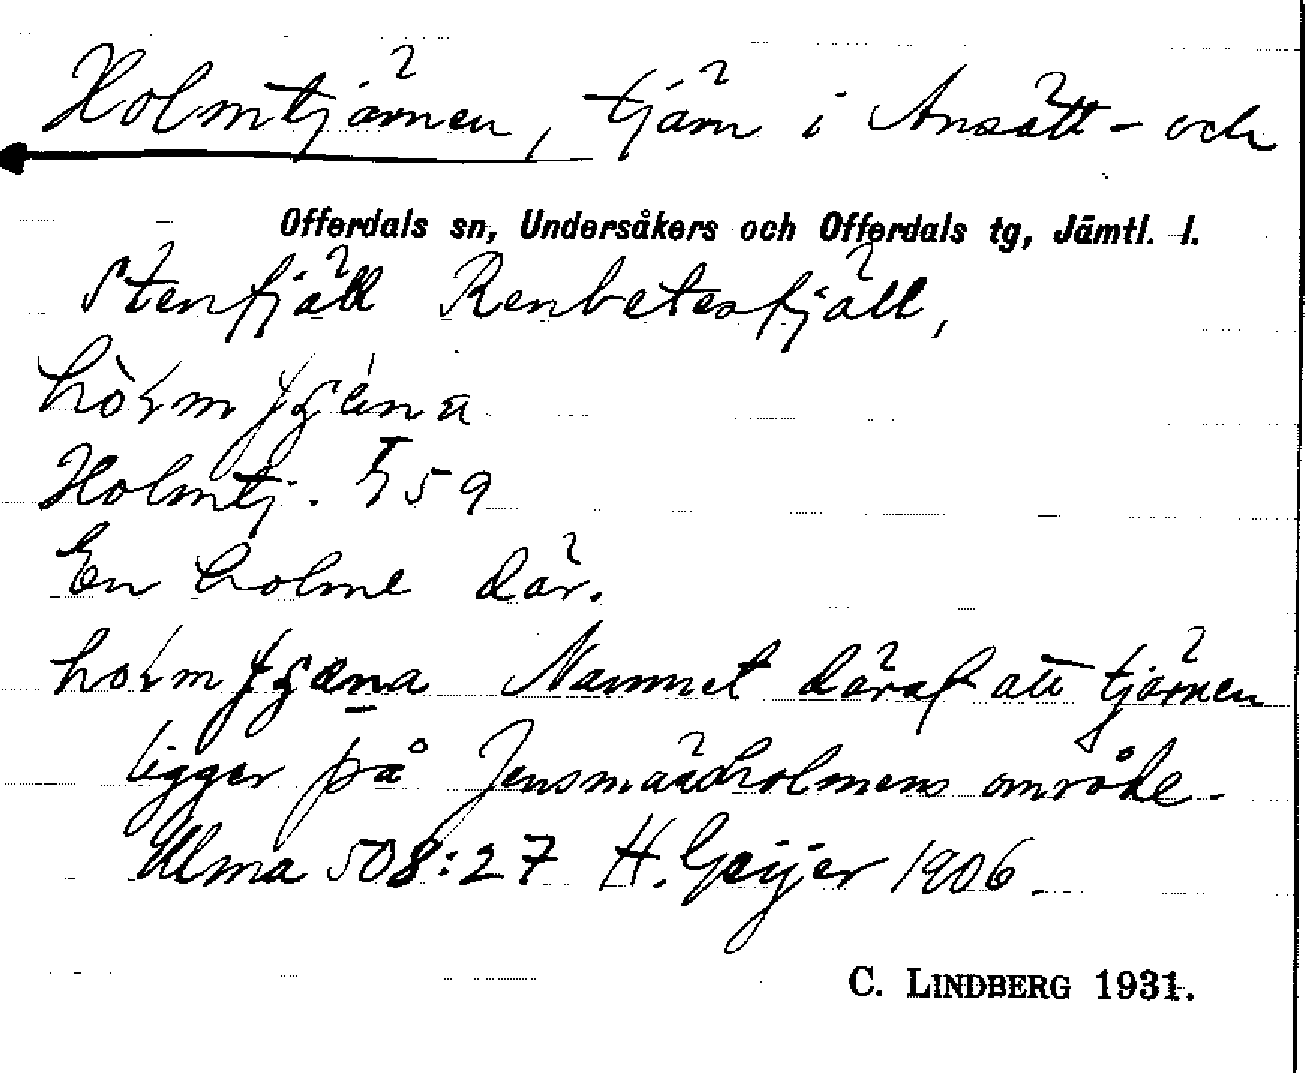 Holmtjärnen, tjärn i Ansätt- och
Offerdals sn, Undersåkers och Offerdals tg, Jämtl. l.
Stenfjäll Renbetesfjäll,
Holmtj. 59
En holme där.
Namnet däraf att tjärnen
ligger på Jensmässholmens område.
Ulma 508:27 H. Geijer 1906
C. LINDBERG 1931.